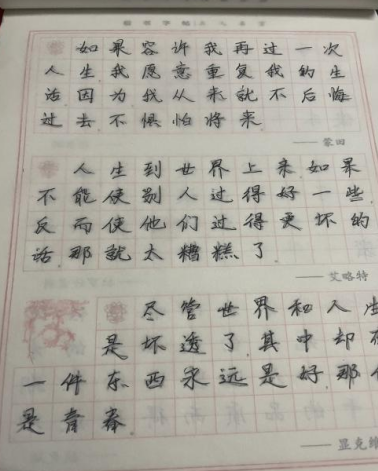 如果容许我再过一次
人生我愿意重复我的生
活因为我从来就不后悔
过去不惧怕将来
——蒙田
人生到世界上来如果
不能使别人过得好一些
反而使他们过得更坏的
话那就太糟糕了
——艾略特
尽管世界和人生
是坏透了其中却
一件东西永远是好那
是青春
——显克维